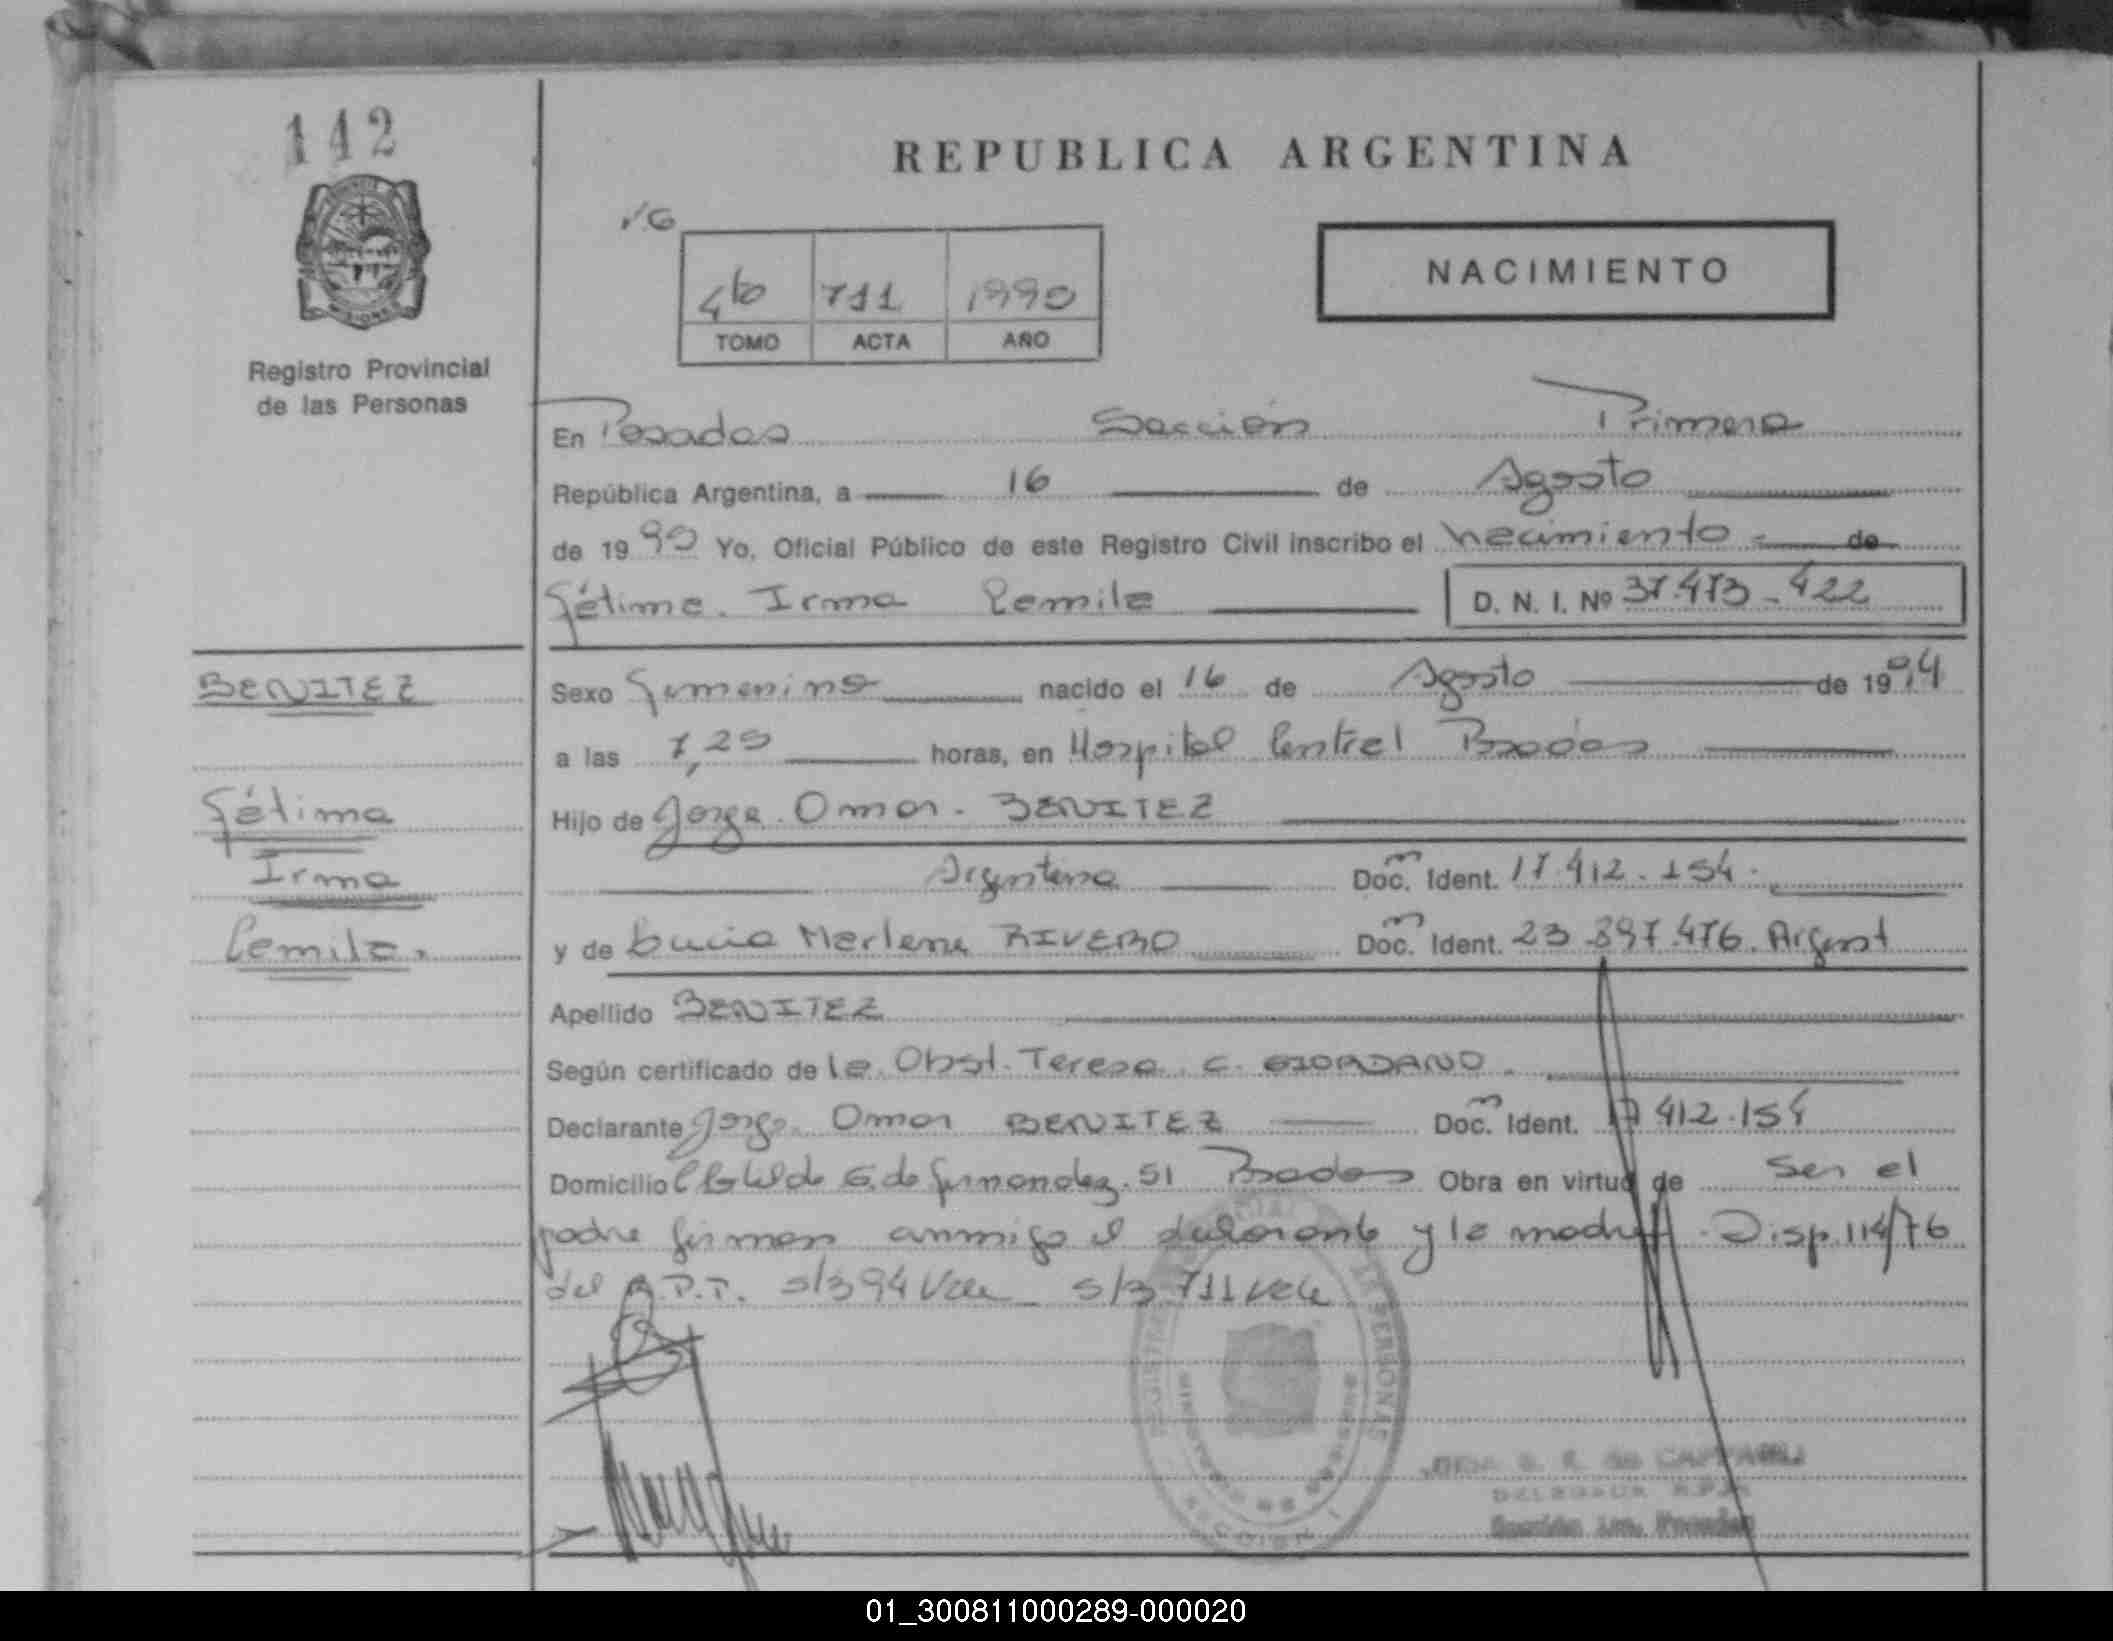 142
REPUBLICA ARGENTINA
NACIMIENTO
4to 711 1990
TOMO ACTA AÑO
Registro Provincial
de las Personas
En Posadas Sección Primera
República Argentina, a 16 de Agosto
de 1990 Yo, Oficial Público de este Registro Civil inscribo el nacimiento de
Fátima Irma Camila D. N. I. Nº 37.473-422
BENITEZ
Fátima
Irma
Camila.
Sexo Femenino nacido el 16 de Agosto de 1994
a las 7,25 horas, en Hospital Central Posadas
Hijo de Jorge Omar BENITEZ
Argentina Doc. Ident. 17.412.154.
y de Lucia Marlene RIVERO Doc. Ident. 23.897.476. Argent
Apellido BENITEZ
Según certificado de la Obst. Teresa C. GIORDANO.
Declarante Jorge Omar BENITEZ Doc. Ident. 17 412.154
Domicilio G. de Fernandez. 51 Posadas Obra en virtud de ser el
padre firman conmigo el declarante y la madre. Disp. 114/76
del R.P.P. s/b 94 Vale s/b 711 Vale
REGISTRO PERSONAS
MISIONES
SECCION 1
DELEGADA R.P.P.
Sección 1ra. Posadas
01_300811000289-000020